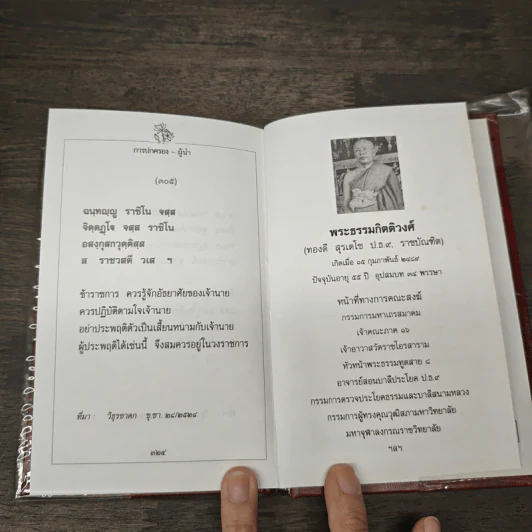 การปกครอง - ผู้นำ
(๓๐๕)
ฉนฺทญฺญู ราชิโน จสฺส
จิตฺตฏฺโฐ จสฺส ราชิโน
อสงฺกุสกวุตฺติสฺส
ส ราชวสตึ วเส ฯ
ข้าราชการ ควรรู้จักอัธยาศัยของเจ้านาย
ควรปฏิบัติตามใจเจ้านาย
อย่าประพฤติตัวเป็นเสี้ยนหนามกับเจ้านาย
ผู้ประพฤติได้เช่นนี้ จึงสมควรอยู่ในวงราชการ
ที่มา : วิธุรชาดก ขุ.ชา. ๒๘/๒๕๒๔
๓๒๔
พระธรรมกิตติวงศ์
(ทองดี สุรเตโช ป.ธ.๙, ราชบัณฑิต)
เกิดเมื่อ ๑๕ กุมภาพันธ์ ๒๔๘๙
ปัจจุบันอายุ ๕๕ ปี อุปสมบท ๓๔ พรรษา
หน้าที่ทางการคณะสงฆ์
กรรมการมหาเถรสมาคม
เจ้าคณะภาค ๑๖
เจ้าอาวาสวัดราชโอรสาราม
หัวหน้าพระธรรมทูตสาย ๘
อาจารย์สอนบาลีประโยค ป.ธ.๙
กรรมการตรวจประโยคธรรมและบาลีสนามหลวง
กรรมการผู้ทรงคุณวุฒิสภามหาวิทยาลัย
มหาจุฬาลงกรณราชวิทยาลัย
ฯลฯ